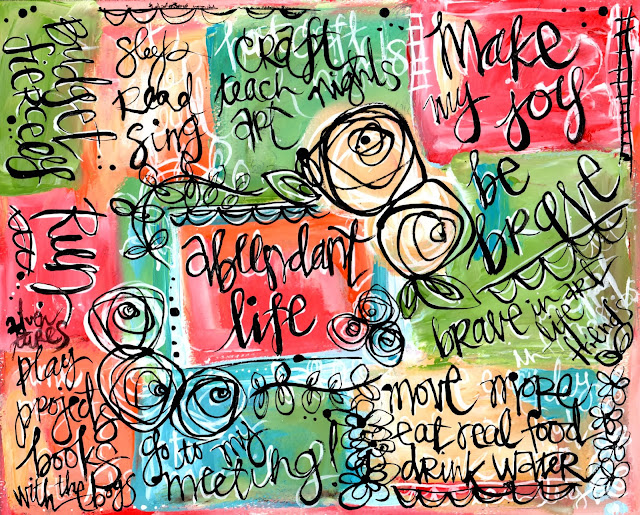 Budget
fiercely
sleep
read
sing
craft
teach nights
art
Make
my joy
be
brave
brave in art
life
Run
abundant
life
adven
tures
play
projects
books
with the boys
go to my
meeting!
move more
eat real food
drink water